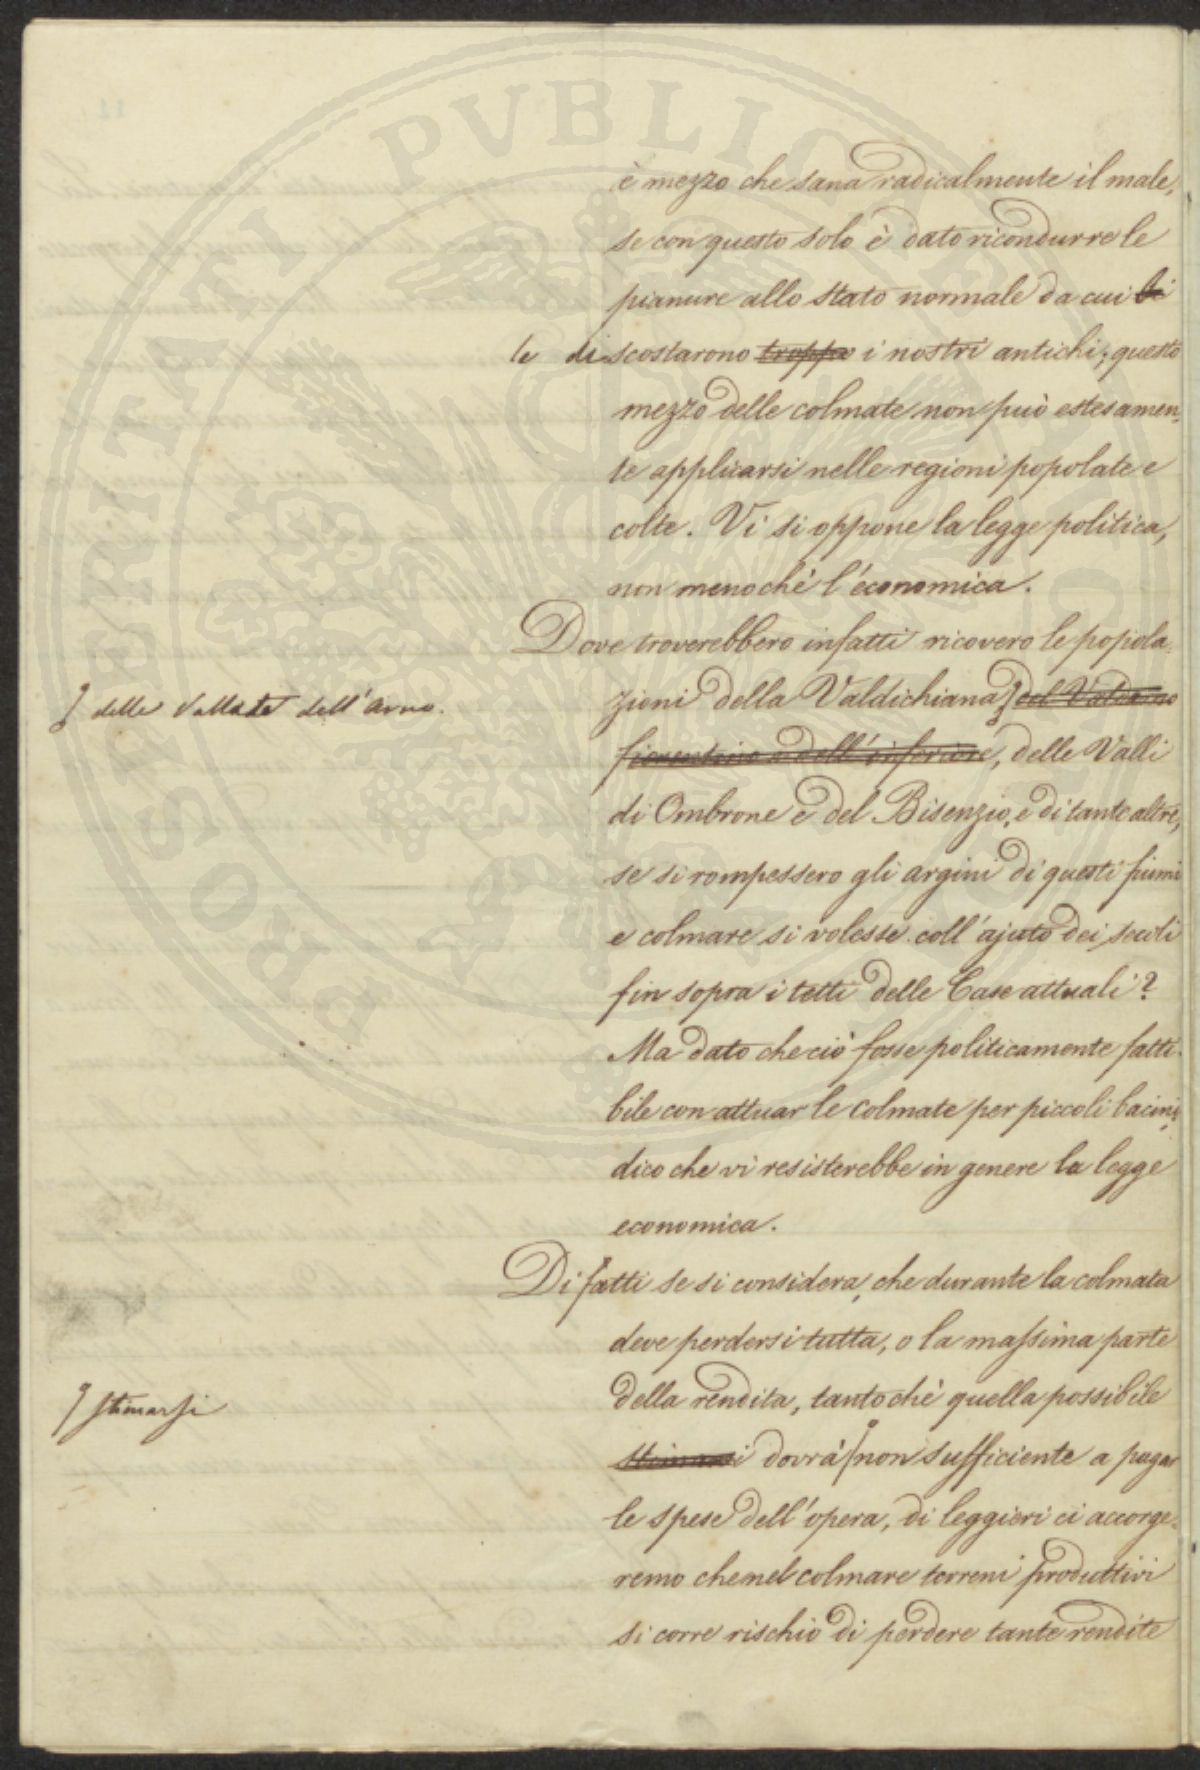 è mezzo che sana radicalmente il male,
se con questo solo è dato ricondurre le
pianure allo stato normale da cui li
le discostarono troppo i nostri antichi; questo
mezzo delle colmate non può estesamen-
te applicarsi nelle regioni popolate e
colte. Vi si oppone la legge politica,
non meno chè l'economica.
Dove troverebbero infatti ricovero le popola-
zioni della Valdichiana, del Valdarno
delle Vallate dell'Arno.
fiorentino o dell'inferiore, delle Valli
di Ombrone e del Bisenzio, e di tante altre,
se si rompessero gli argini di questi fiumi
e colmare si volesse coll'ajuto dei secoli
fin sopra i tetti delle Case attuali?
Ma dato che ciò fosse politicamente fatti-
bile con attuar le colmate per piccoli bacini,
dico che vi resisterebbe in genere la legge
economica.
Di fatti se si considera, che durante la colmata
deve perdersi tutta, o la massima parte
della rendita, tanto chè quella possibile
stimarsi
stimarsi dovrà non sufficiente a pagar
le spese dell'opera, di leggieri ci accorge-
remo che nel colmare terreni produttivi
si corre rischio di perdere tante rendite
PROSPERITATI PVBLICAE